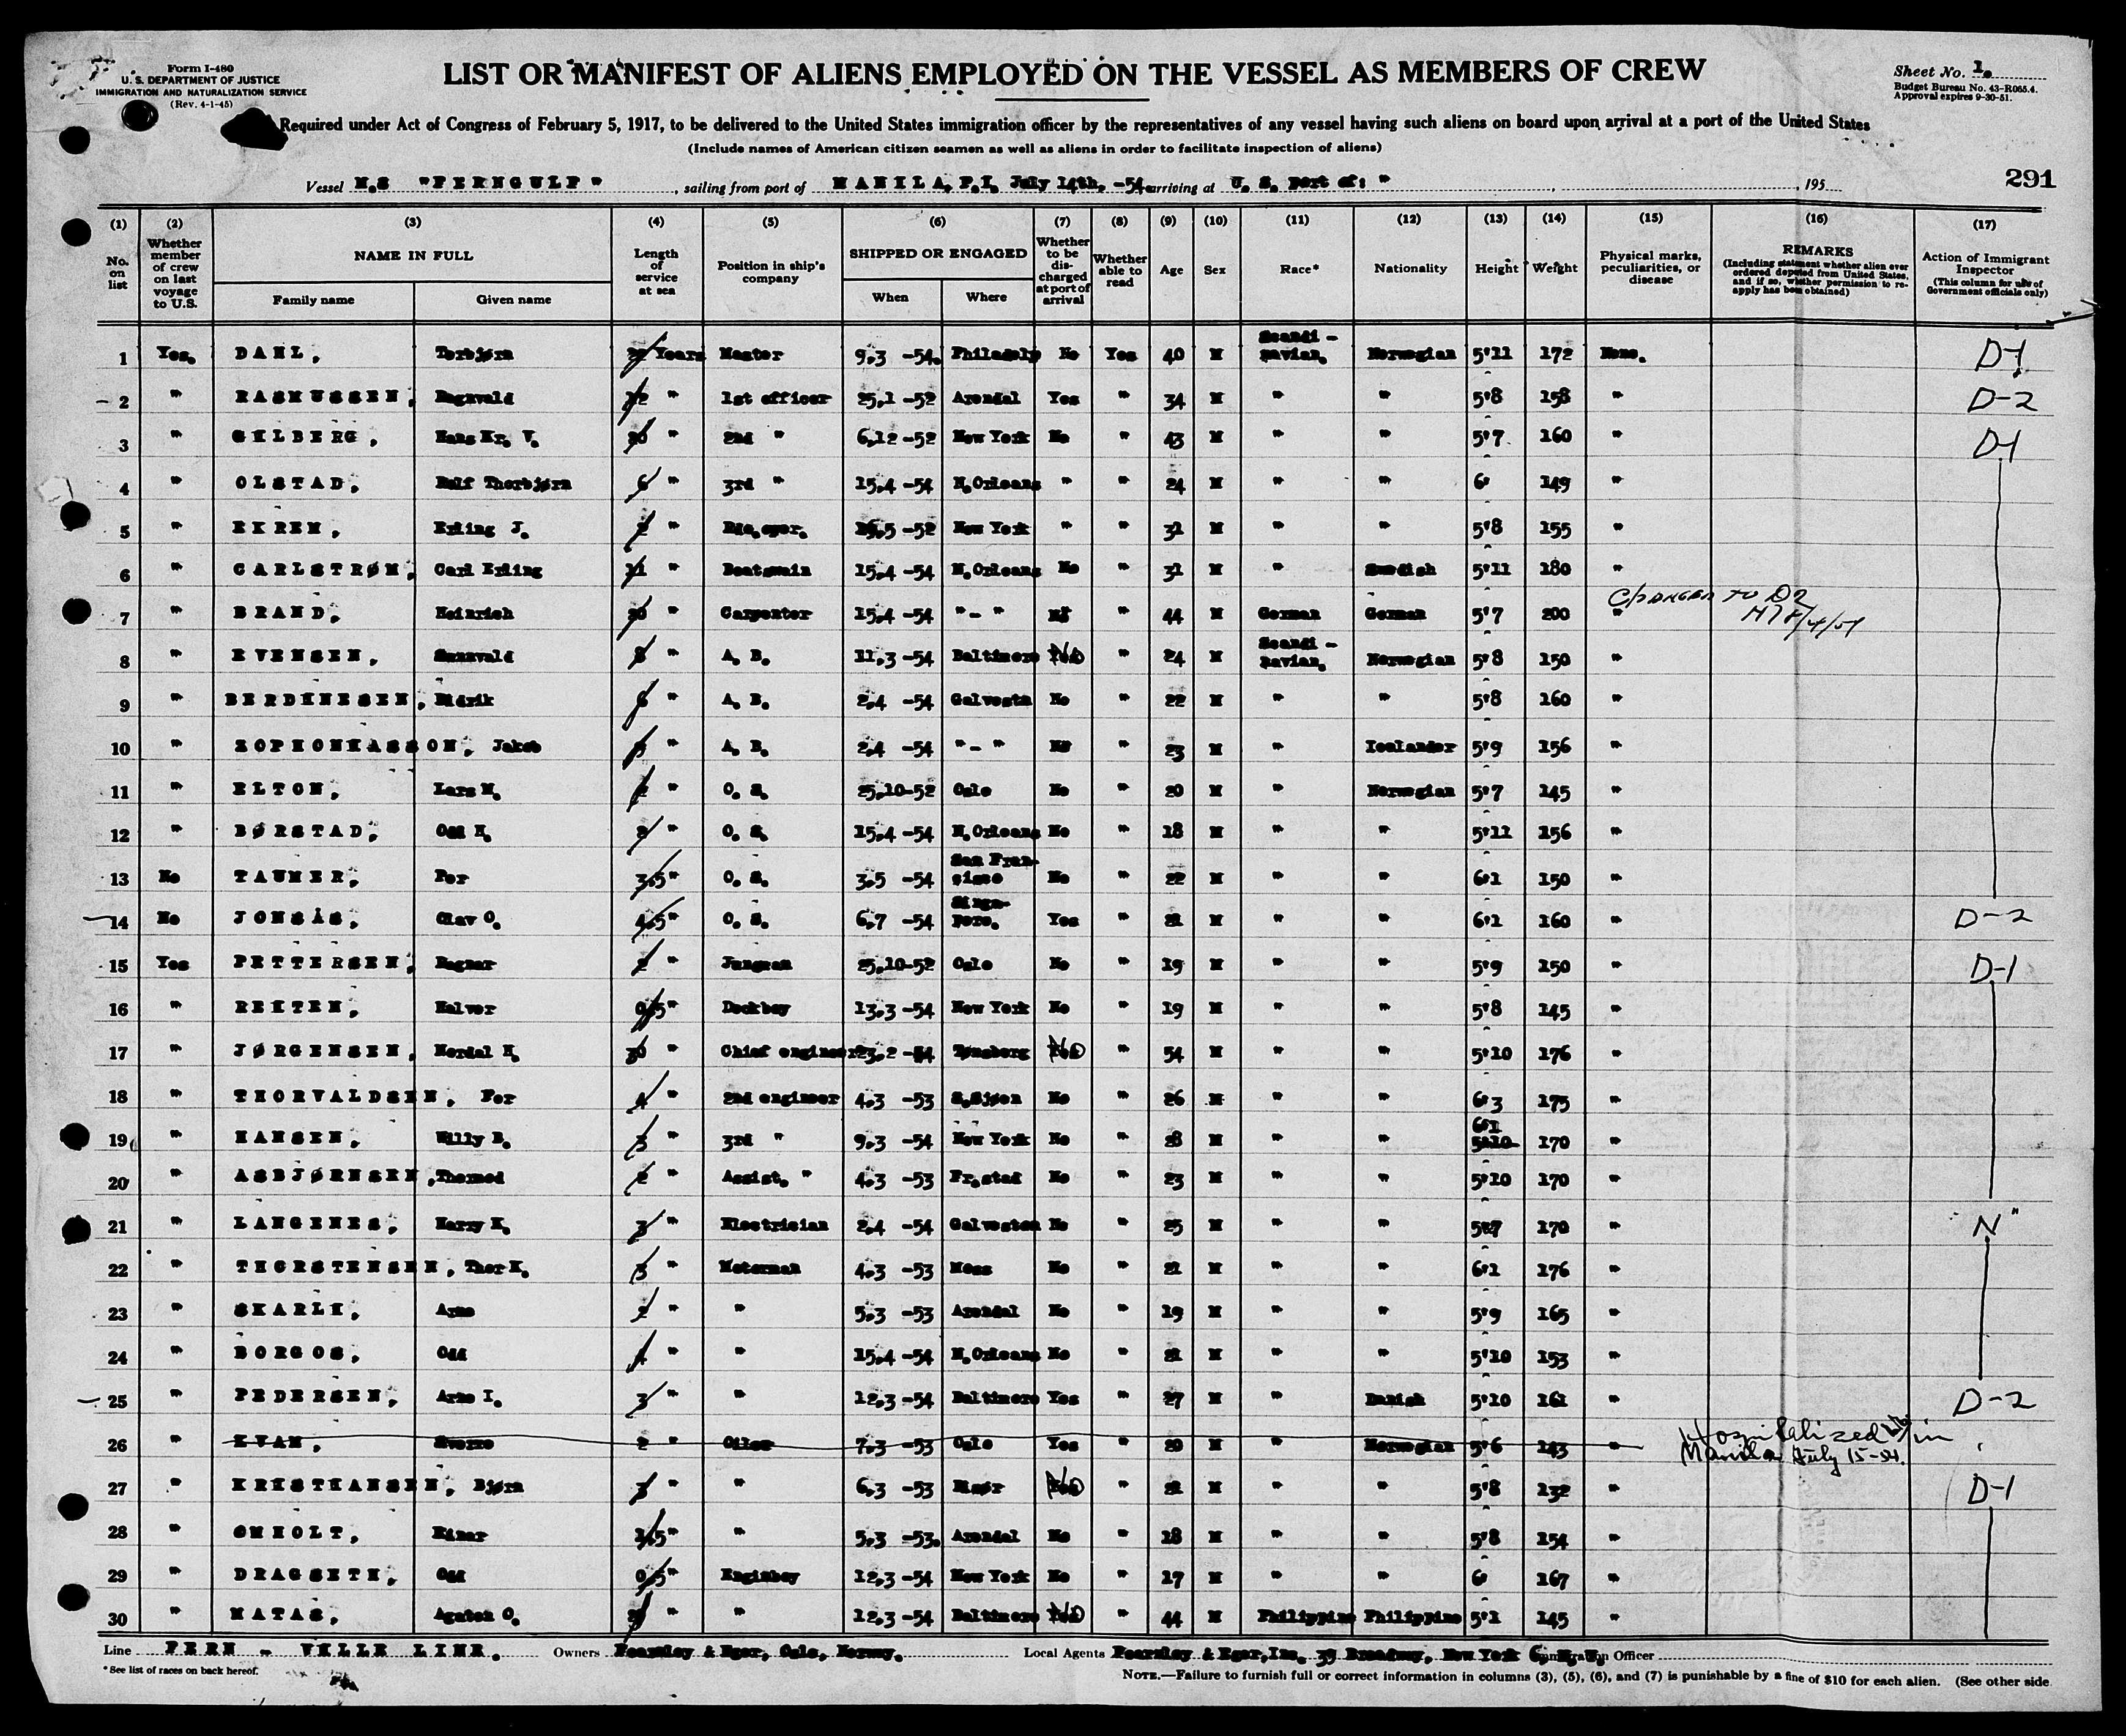 Form I-480
U. S. DEPARTMENT OF JUSTICE
IMMIGRATION AND NATURALIZATION SERVICE
(Rev. 4-1-45)
LIST OR MANIFEST OF ALIENS EMPLOYED ON THE VESSEL AS MEMBERS OF CREW
Sheet No. 1.
Budget Bureau No. 43-R065.4.
Approval expires 9-30-51.
Required under Act of Congress of February 5, 1917, to be delivered to the United States immigration officer by the representatives of any vessel having such aliens on board upon arrival at a port of the United States
(Include names of American citizen seamen as well as aliens in order to facilitate inspection of aliens)
291
Vessel M.S "FERNGULF", sailing from port of MANILA, P.I. July 14th, -54 arriving at U. S. port of: ", 195
(1) (2) (3) (4) (5) (6) (7) (8) (9) (10) (11) (12) (13) (14) (15) (16) (17)
No. on list
Whether member of crew on last voyage to U.S.
NAME IN FULL
Family name Given name
Length of service at sea
Position in ship's company
SHIPPED OR ENGAGED
When Where
Whether to be discharged at port of arrival
Whether able to read
Age
Sex
Race*
Nationality
Height
Weight
Physical marks, peculiarities, or disease
REMARKS
(Including statement whether alien ever ordered deported from United States, and if so, whether permission to reapply has been obtained)
Action of Immigrant Inspector
(This column for use of Government officials only)
1 Yes. DAHL, Torbjørn Years Master 9.3 -54. Philadelp No Yes 40 M Scandi-navian. Norwegian 5'11 172 None. D-1
2 " RASMUSSEN, Ragnvald 12 " 1st officer 25.1 -52 Arendal Yes " 34 M " " 5'8 158 " D-2
3 " GILBERG, Hans Kr. V. 20 " 2nd " 6.12 -52 New York No " 43 M " " 5'7 160 " D-1
4 " OLSTAD, Rolf Thorbjørn 6 " 3rd " 15.4 -54 N.Orleans " " 24 M " " 6' 149 "
5 " EKREM, Erling J. " Rdo.oper. -52 New York " " 31 M " " 5'8 155 "
6 " CARLSTRØM, Carl Erling 11 " Boatswain 15.4 -54 N.Orleans No " 31 M " Swedish 5'11 180 "
7 " BRAND, Heinrich 20 " Carpenter 15.4 -54 "-" " 44 M German German 5'7 200 " Changed to D2
8 " EVENSEN, 8 " A. B. 11.3 -54 Baltimore No " 24 M Scandi-navian. Norwegian 5'8 150 "
9 " BERDINESEN, Didrik 6 " A. B. 2.4 -54 Galvestn No " 22 M " " 5'8 160 "
10 " ZOPHONIASSON, Jakob " A. B. 2.4 -54 "-" No " 23 M " Icelander 5'9 156 "
11 " ELTON, Lars M. " O. S. 25.10-52 Oslo No " 20 M " Norwegian 5'7 145 "
12 " BØRSTAD, Odd 2 " O. S. 15.4 -54 N.Orleans No " 18 M " " 5'11 156 "
13 No TAUMER, Per 3.5 " O. S. 3.5 -54 San Fran-cisco No " 22 M " " 6'1 150 "
14 No JONSÅS, Olav O. 4.5 " O. S. 6.7 -54 Singa-pore. Yes " 21 M " " 6'1 160 " D-2
15 Yes PETTERSEN, Ragnar 2 " Jungman 25.10-52 Oslo No " 19 M " " 5'9 150 " D-1
16 " REITEN, Halvor 0.5 " Deckboy 13.3 -54 New York No " 19 M " " 5'8 145 "
17 " JØRGENSEN, Nordal H. 30 " Chief engineer 23.2 -54 Tønsberg No " 54 M " " 5'10 176 "
18 " THORVALDSEN, Per 4 " 2nd engineer 4.3 -53 No " 26 M " " 6'3 175 "
19 " HANSEN, Willy B. 3 " 3rd " 9.3 -54 New York No " 28 M " " 6'1 5'10 170 "
20 " ASBJØRNSEN, Thormod 2 " Assist. " 4.3 -53 Fr.stad No " 23 M " " 5'10 170 "
21 " LANGENES, Harry K. 3 " Electrician 2.4 -54 Galveston No " 25 M " " 5'7 170 " N "
22 " THORSTENSEN, Thor K. 3 " Motorman 4.3 -53 Moss No " 21 M " " 6'1 176 "
23 " SKARLI, Arne 2 " " 5.3 -53 Arendal No " 19 M " " 5'9 165 "
24 " BORGOS, Odd 4 " " 15.4 -54 N.Orleans No " 21 M " " 5'10 153 "
25 " PEDERSEN, Arne I. 3 " " 12.3 -54 Baltimore Yes " 27 M " Danish 5'10 161 " D-2
26 " KVAM, Sverre 2 " Oiler 7.3 -53 Oslo Yes " 20 M " Norwegian 5'6 143 " Hospitalized in Manila July 15-54.
27 " KRISTIANSEN, Bjørn 3 " " 6.3 -53 Risør No " 21 M " " 5'8 132 " D-1
28 " OMHOLT, Einar 1.5 " " 5.3 -53. Arendal No " 18 M " " 5'8 154 "
29 " DRAGSETH, Odd 0.5 " Enginboy 12.3 -54 New York No " 17 M " " 6' 167 "
30 " MATAS, Agaton O. " " 12.3 -54 Baltimore No " 44 M Philippine Philippine 5'1 145 "
Line FERN - VILLE LINE. Owners Fearnley & Eger, Oslo, Norway. Local Agents Fearnley & Eger, Inc. 39 Broadway, New York 6, N.Y. Immigration Officer
*See list of races on back hereof.
NOTE.—Failure to furnish full or correct information in columns (3), (5), (6), and (7) is punishable by a fine of $10 for each alien. (See other side